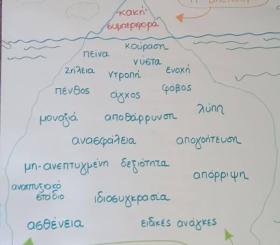 κακή
συμπεριφορά
κούραση
πείνα
νύστα
ζήλεια
ντροπή
ενοχή
πένθος
άγχος
φόβος
λύπη
μοναξιά
αποθάρρυνση
ανασφάλεια
απογοήτευση
μη-ανεπτυγμένη δεξιότητα
απόρριψη
αναπτυξιακό
στάδιο
ιδιοσυγκρασία
ασθένεια
ειδικές ανάγκες